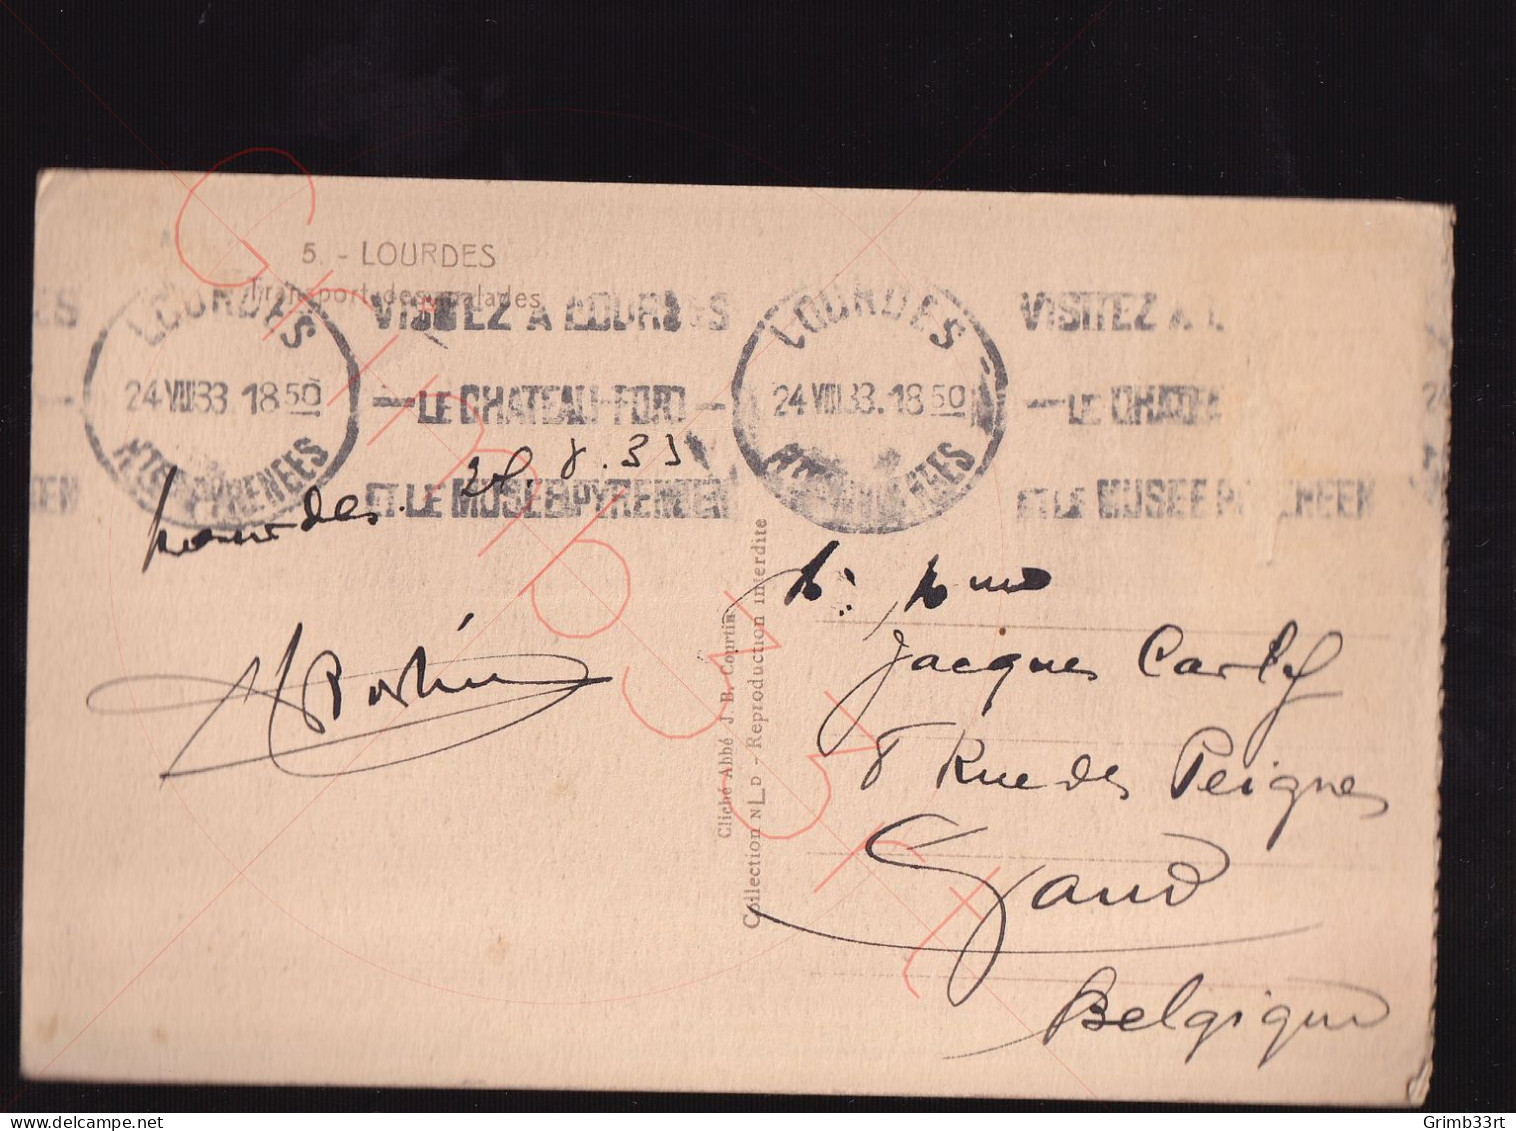 5. - LOURDES
Transport des malades
LOURDES
24 VIII 33. 18 50
HTES PYRENEES
VISITEZ A LOURDES
LE CHATEAU-FORT
ET LE MUSEE PYRENEEN
LOURDES
24 VIII 33. 18 50
HTES PYRENEES
VISITEZ A L
LE CHATEA
ET LE MUSEE PYRENEEN
Lourdes. 8. 33
Cliché Abbé J. B. Courtin
Collection N D - Reproduction interdite
M. Mme
Jacques Carly
8 Rue des Peignes
Gand
Belgique
Grimb33rt
Grimb33rt